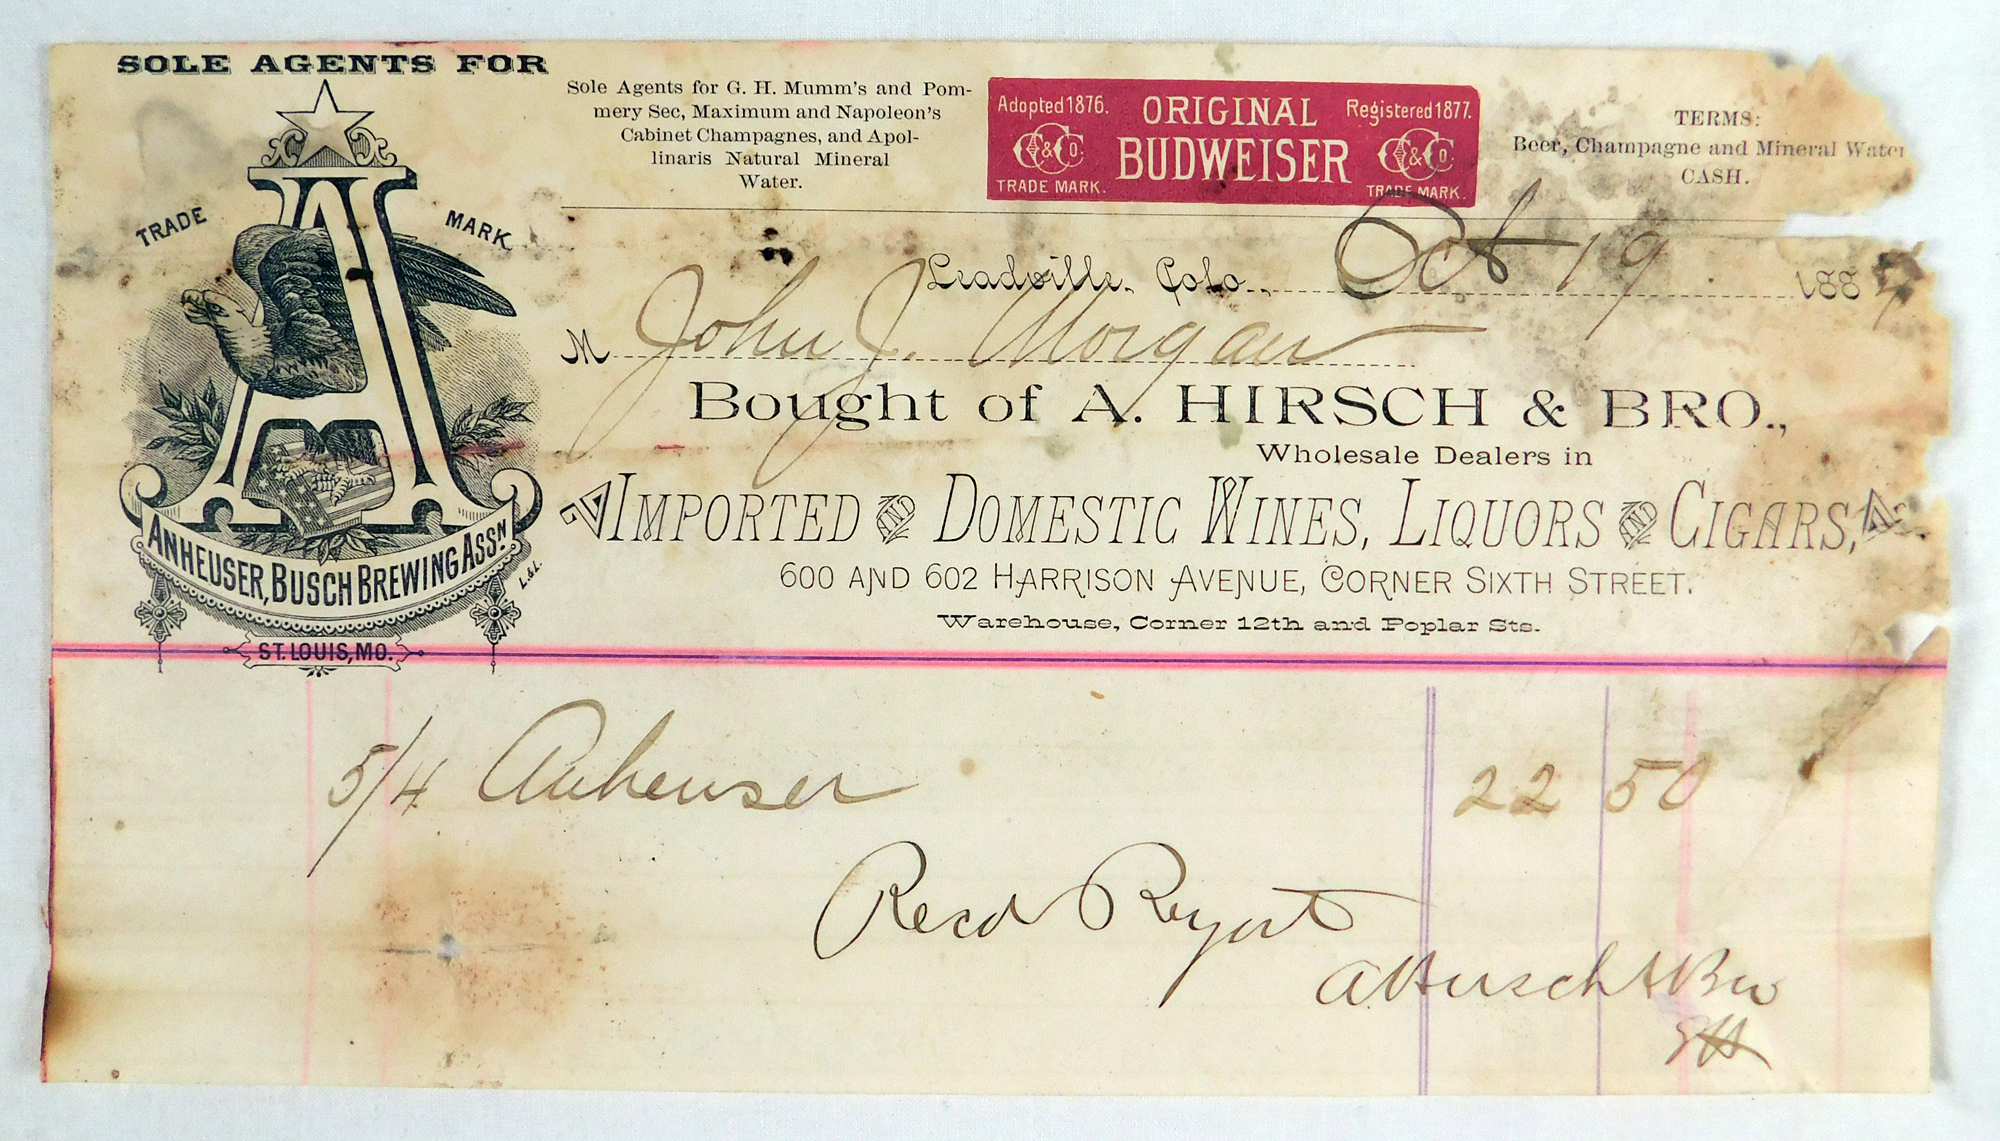 SOLE AGENTS FOR
TRADE MARK
ANHEUSER, BUSCH BREWING ASSN
L.&L.
ST. LOUIS, MO.
Sole Agents for G. H. Mumm's and Pom-
mery Sec, Maximum and Napoleon's
Cabinet Champagnes, and Apol-
linaris Natural Mineral
Water.
Adopted 1876.
C&Co.
TRADE MARK.
ORIGINAL
BUDWEISER
Registered 1877.
C&Co.
TRADE MARK.
TERMS:
Beer, Champagne and Mineral Water
CASH.
Leadville, Colo., Oct 19 188
M John J. Morgan
Bought of A. HIRSCH & BRO.,
Wholesale Dealers in
IMPORTED AND DOMESTIC WINES, LIQUORS AND CIGARS,
600 AND 602 HARRISON AVENUE, CORNER SIXTH STREET.
Warehouse, Corner 12th and Poplar Sts.
5/4 Anheuser 22 50
Recd Paymt
A Hirsch & Bro